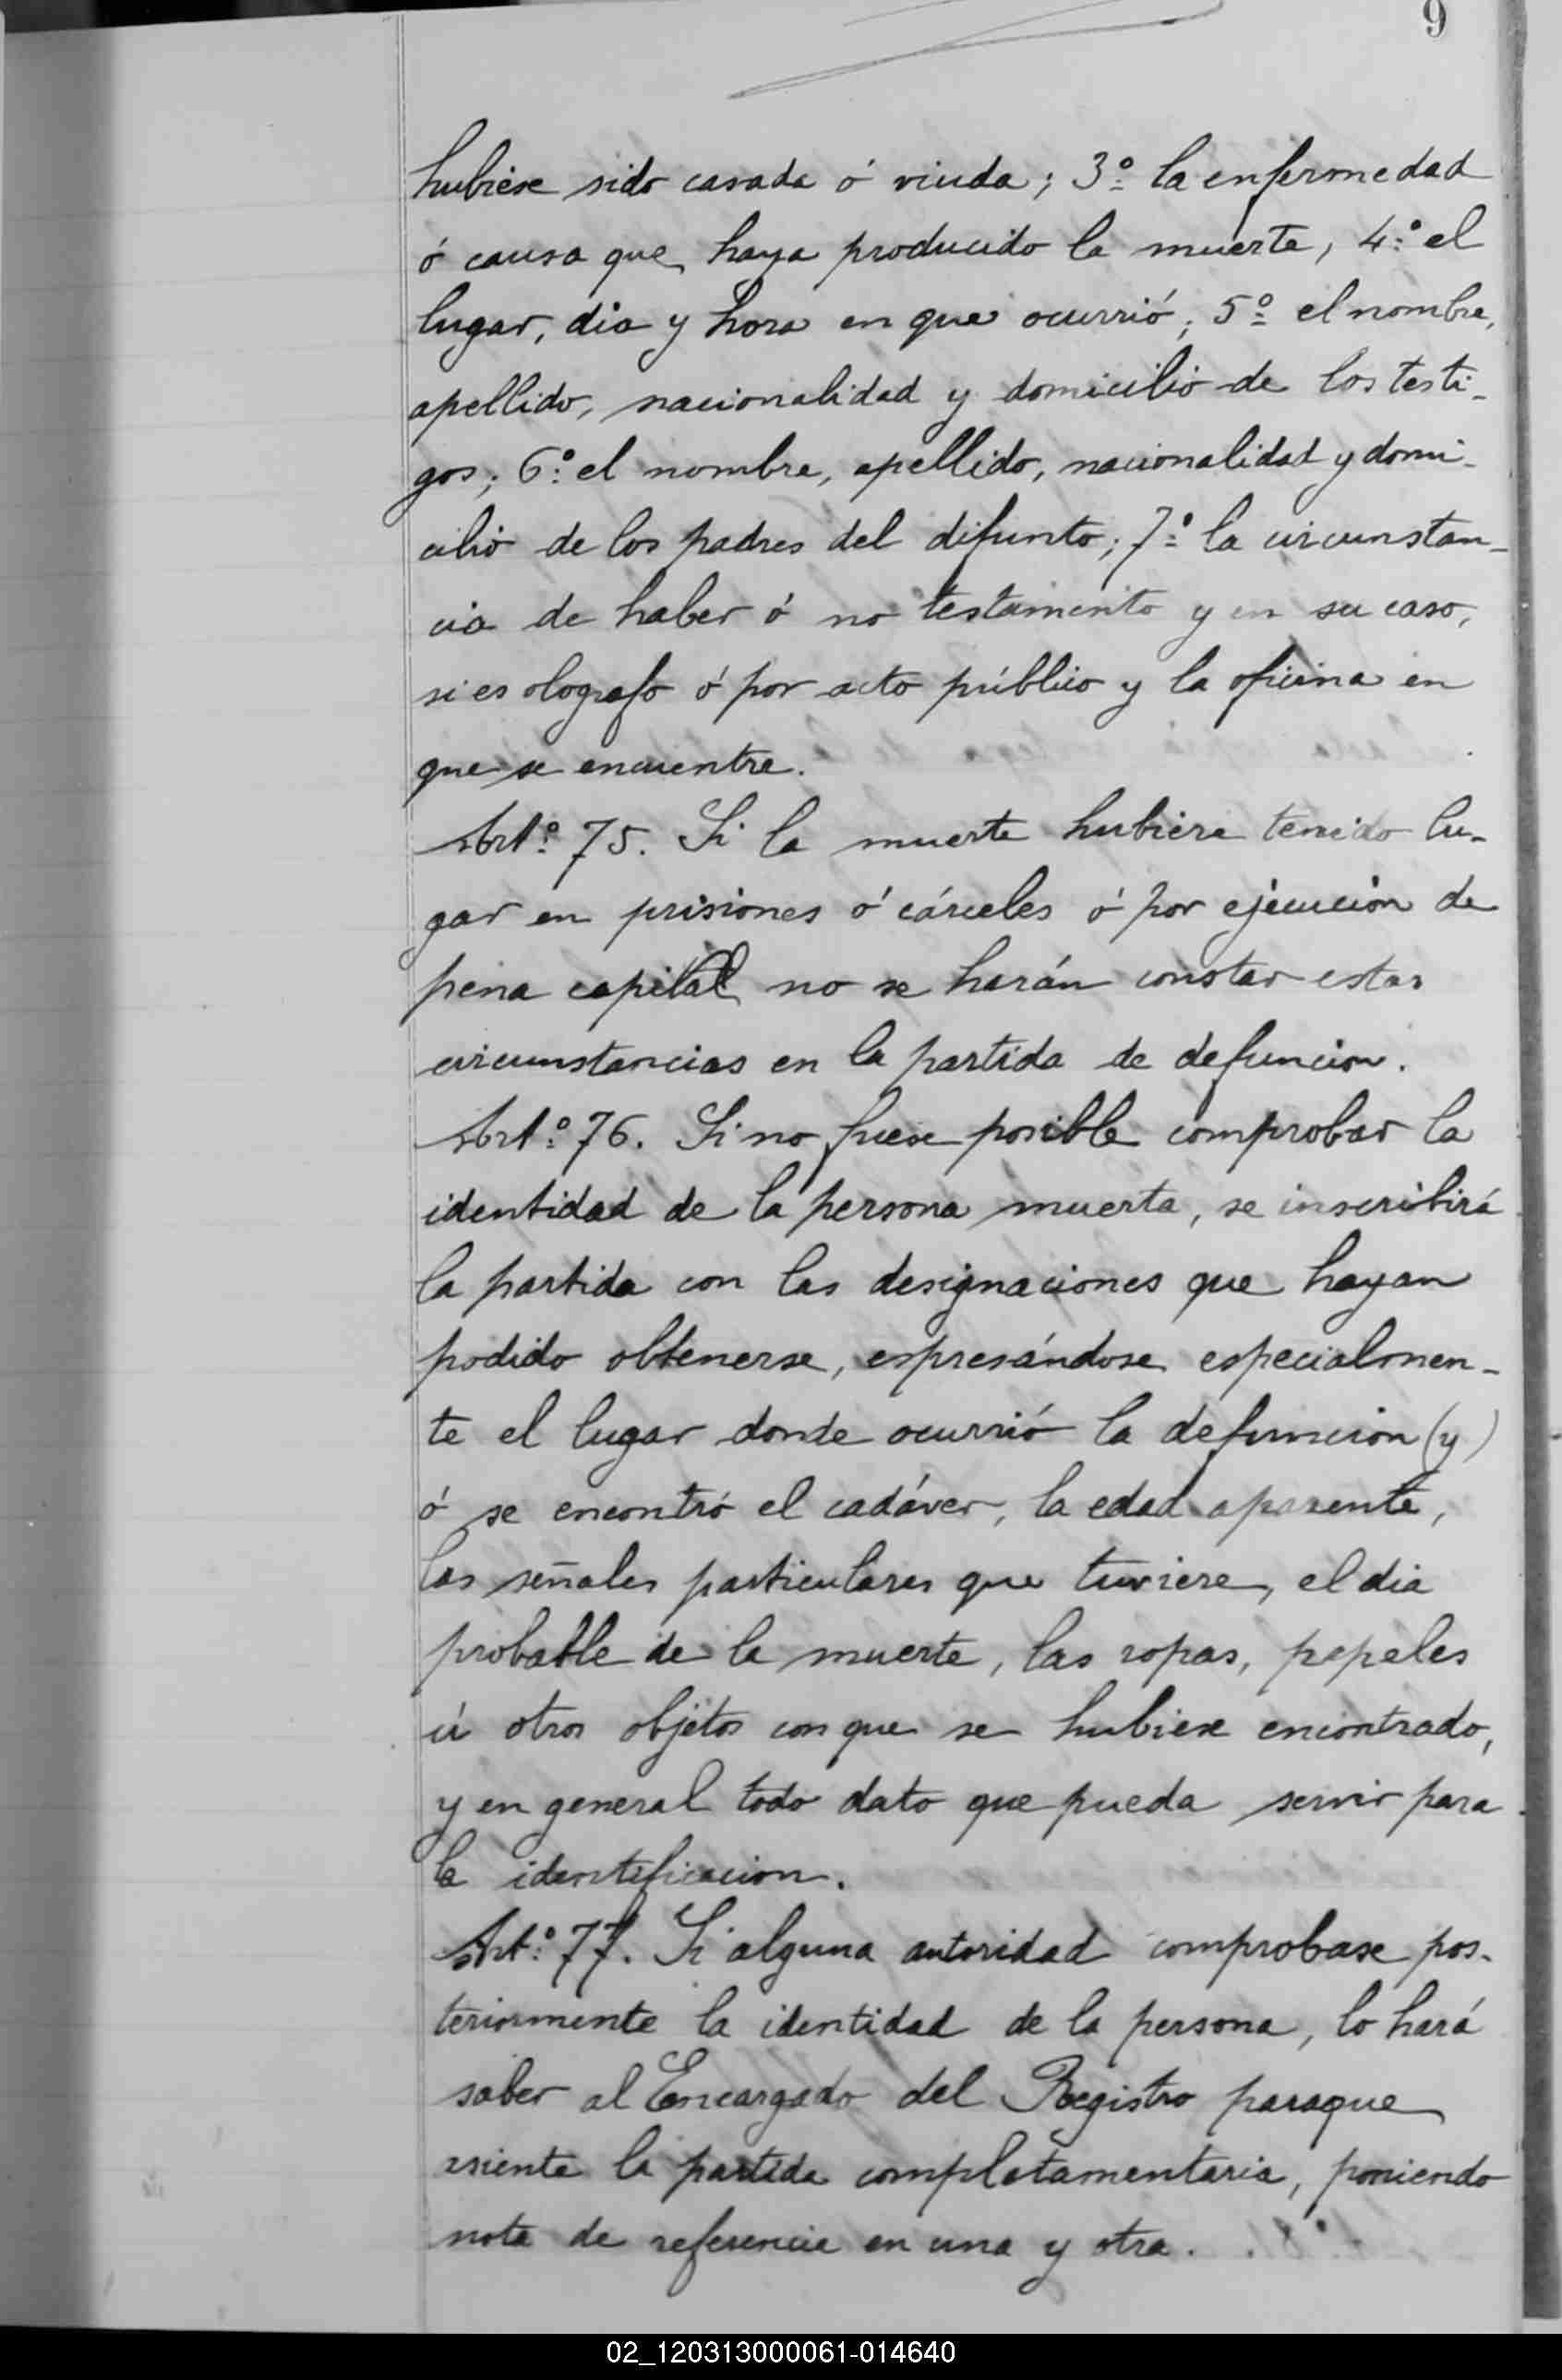 9
hubiese sido casada ó viuda; 3º la enfermedad
ó causa que haya producido la muerte, 4º el
lugar, dia y hora en que ocurrió; 5º el nombre,
apellido, nacionalidad y domicilio de los testi-
gos; 6º el nombre, apellido, nacionalidad y domi-
cilio de los padres del difunto; 7º la circunstan-
cia de haber ó no testamento y en su caso,
si es olografo ó por acto público y la oficina en
que se encuentre.
Artº 75. Si la muerte hubiere tenido lu-
gar en prisiones ó cárceles ó por ejecución de
pena capital no se harán constar estas
circunstancias en la partida de defuncion.
Artº 76. Si no fuese posible comprobar la
identidad de la persona muerta, se inscribirá
la partida con las designaciones que hayan
podido obtenerse, espresándose especialmen-
te el lugar donde ocurrió la defuncion (y)
ó se encontró el cadáver, la edad aparente,
las señales particulares que tuviere, el dia
probable de la muerte, las ropas, papeles
ú otros objetos con que se hubiese encontrado,
y en general todo dato que pueda servir para
la identificacion.
Artº 77. Si alguna autoridad comprobase pos-
teriormente la identidad de la persona, lo hará
saber al Encargado del Registro paraque
asiente la partida completamentaria, poniendo
nota de referencia en una y otra.
02_120313000061-014640